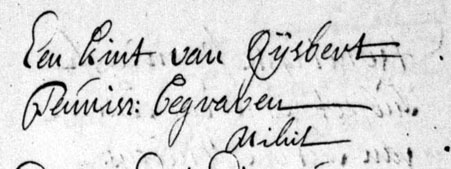 Een kint van Gijsbert
Teunisz: begraven
Nihil